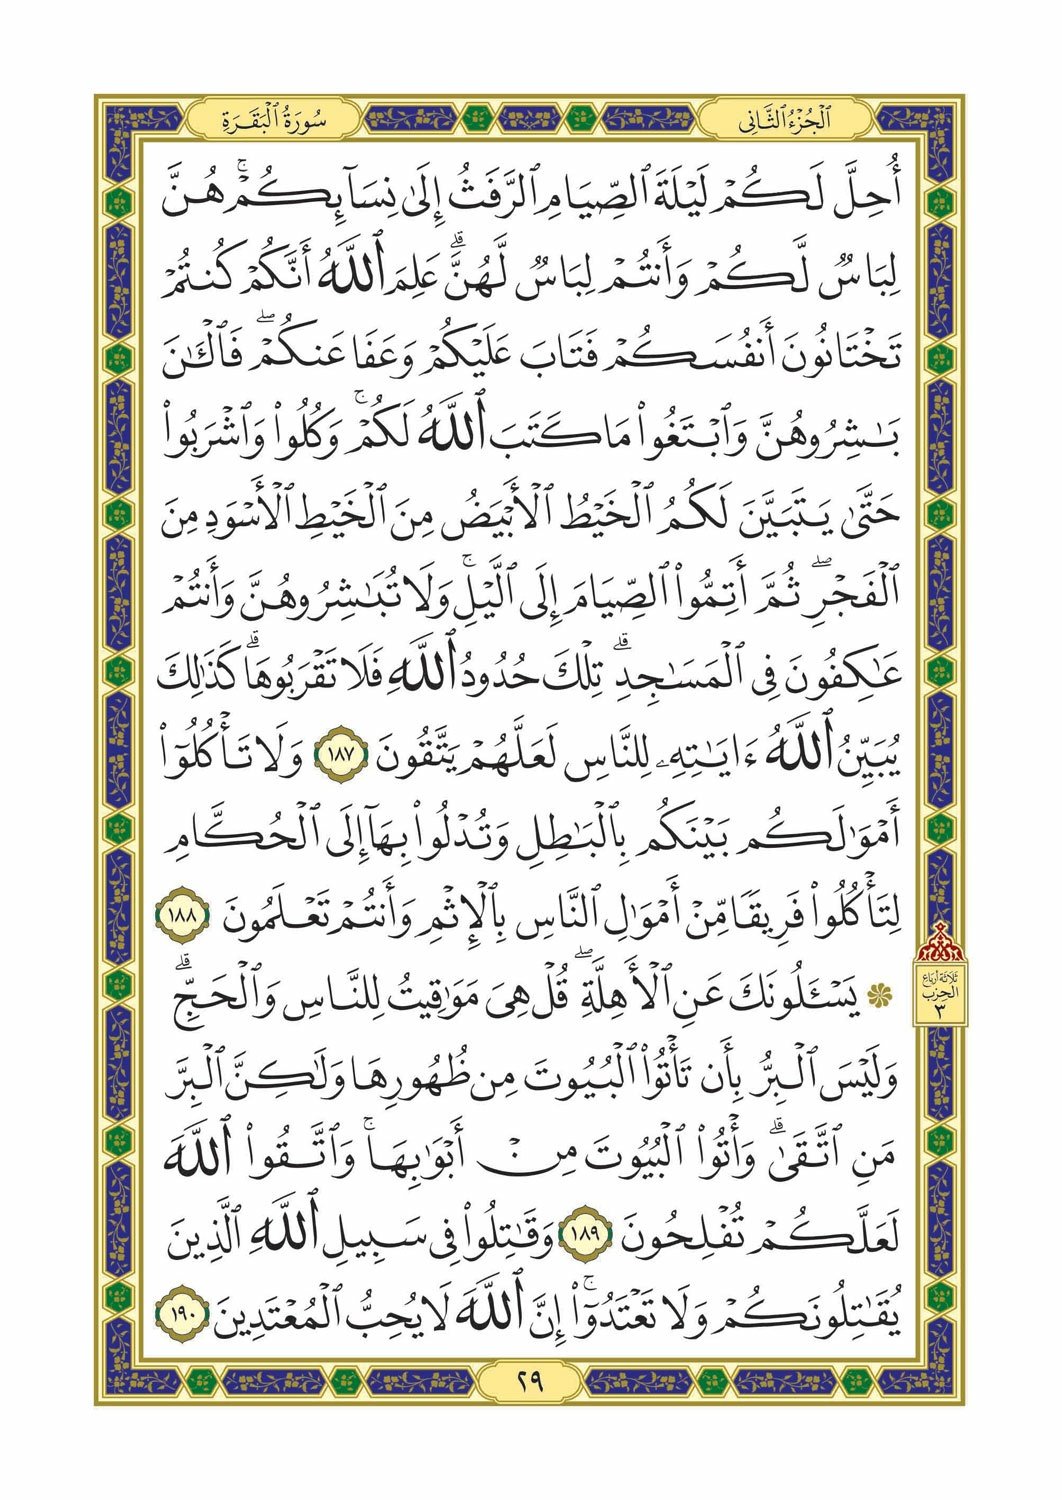 سُورَةُ الْبَقَرَةِ
الْجُزْءُ الثَّانِي
أُحِلَّ لَكُمْ لَيْلَةَ ٱلصِّيَامِ ٱلرَّفَثُ إِلَىٰ نِسَآئِكُمْۚ هُنَّ
لِبَاسٌ لَّكُمْ وَأَنتُمْ لِبَاسٌ لَّهُنَّۗ عَلِمَ ٱللَّهُ أَنَّكُمْ كُنتُمْ
تَخْتَانُونَ أَنفُسَكُمْ فَتَابَ عَلَيْكُمْ وَعَفَا عَنكُمْۖ فَٱلْـَٰٔنَ
بَـٰشِرُوهُنَّ وَٱبْتَغُوا۟ مَا كَتَبَ ٱللَّهُ لَكُمْۚ وَكُلُوا۟ وَٱشْرَبُوا۟
حَتَّىٰ يَتَبَيَّنَ لَكُمُ ٱلْخَيْطُ ٱلْأَبْيَضُ مِنَ ٱلْخَيْطِ ٱلْأَسْوَدِ مِنَ
ٱلْفَجْرِۖ ثُمَّ أَتِمُّوا۟ ٱلصِّيَامَ إِلَى ٱلَّيْلِۚ وَلَا تُبَـٰشِرُوهُنَّ وَأَنتُمْ
عَـٰكِفُونَ فِى ٱلْمَسَـٰجِدِۗ تِلْكَ حُدُودُ ٱللَّهِ فَلَا تَقْرَبُوهَاۗ كَذَٰلِكَ
يُبَيِّنُ ٱللَّهُ ءَايَـٰتِهِۦ لِلنَّاسِ لَعَلَّهُمْ يَتَّقُونَ ١٨٧ وَلَا تَأْكُلُوٓا۟
أَمْوَٰلَكُم بَيْنَكُم بِٱلْبَـٰطِلِ وَتُدْلُوا۟ بِهَآ إِلَى ٱلْحُكَّامِ
لِتَأْكُلُوا۟ فَرِيقًا مِّنْ أَمْوَٰلِ ٱلنَّاسِ بِٱلْإِثْمِ وَأَنتُمْ تَعْلَمُونَ ١٨٨
۞ يَسْـَٔلُونَكَ عَنِ ٱلْأَهِلَّةِۖ قُلْ هِىَ مَوَٰقِيتُ لِلنَّاسِ وَٱلْحَجِّۗ
ثلاثة أرباع
الحزب
٣
وَلَيْسَ ٱلْبِرُّ بِأَن تَأْتُوا۟ ٱلْبُيُوتَ مِن ظُهُورِهَا وَلَـٰكِنَّ ٱلْبِرَّ
مَنِ ٱتَّقَىٰۗ وَأْتُوا۟ ٱلْبُيُوتَ مِنْ أَبْوَٰبِهَاۚ وَٱتَّقُوا۟ ٱللَّهَ
لَعَلَّكُمْ تُفْلِحُونَ ١٨٩ وَقَـٰتِلُوا۟ فِى سَبِيلِ ٱللَّهِ ٱلَّذِينَ
يُقَـٰتِلُونَكُمْ وَلَا تَعْتَدُوٓا۟ۚ إِنَّ ٱللَّهَ لَا يُحِبُّ ٱلْمُعْتَدِينَ ١٩٠
٢٩